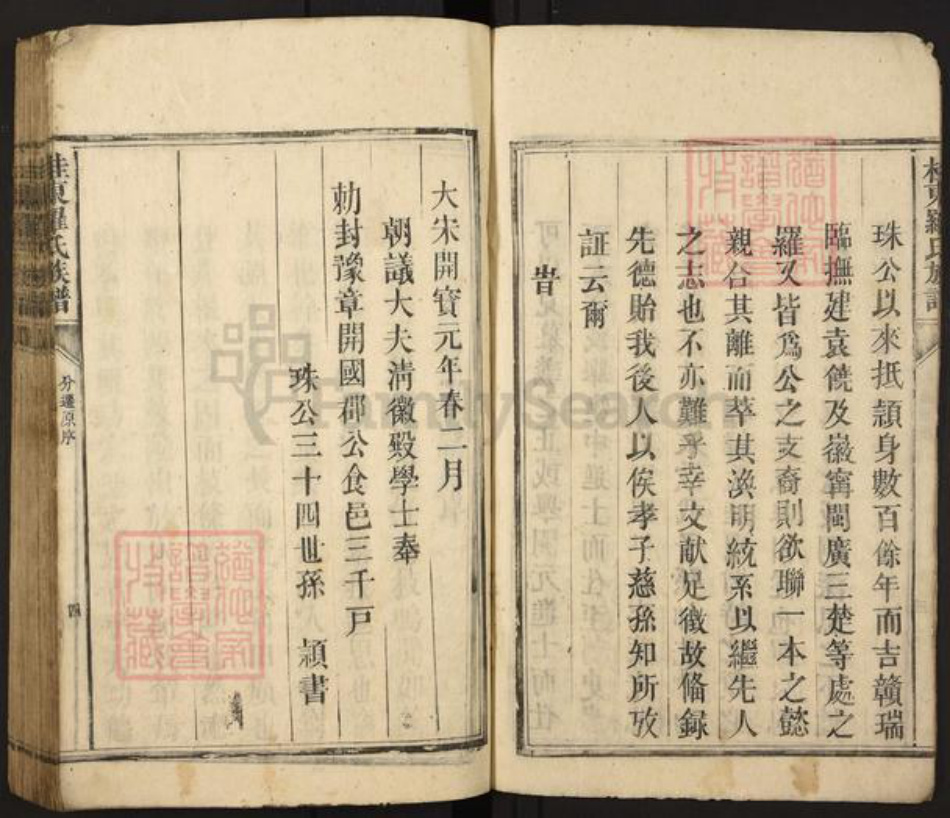 珠公以來抵頴身數百餘年而吉贛瑞
臨撫建袁饒及徽甯閩廣三楚等處之
羅又皆爲公之支裔則欲聯一本之懿
親合其離而萃其渙明統系以繼先人
之志也不亦難乎幸文献足徵故俻録
先德貽我後人以俟孝子慈孫知所攷
証云爾
旹
大宋開寳元年春二月
朝議大夫清徽殿學士奉
勅封豫章開國郡公食邑三千戸
珠公三十四世孫 頴書
桂東羅氏族譜
分遷原序
四
FamilySearch